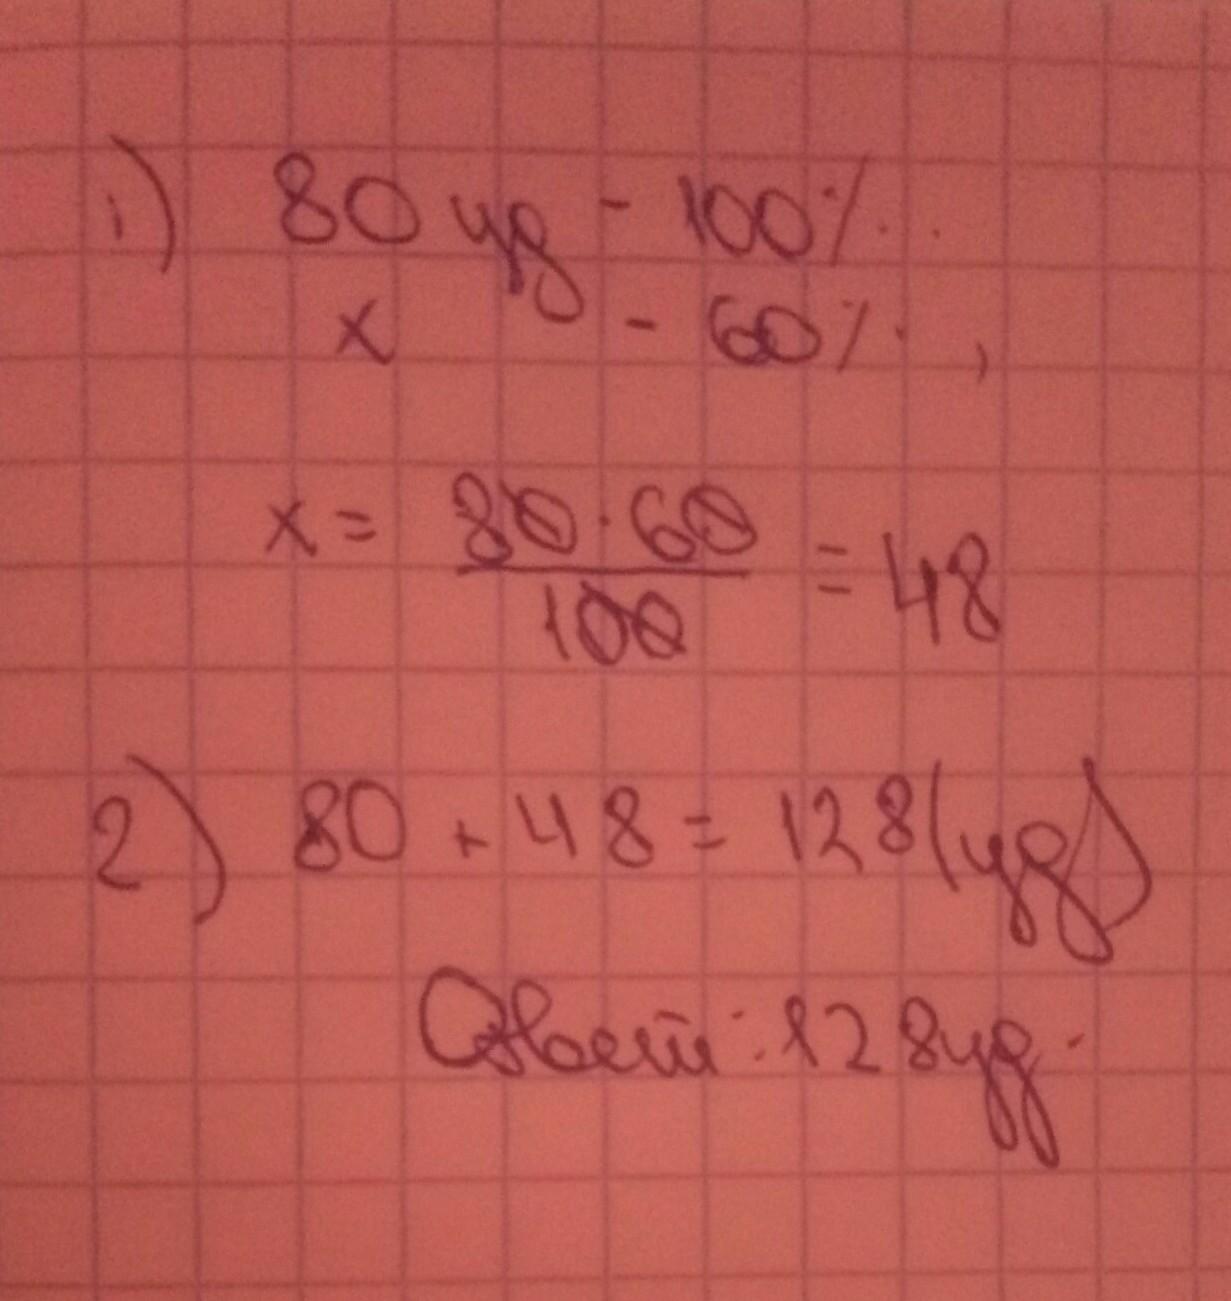 1) 80 уд - 100%
x - 60%,
x = 80 · 60 / 100 = 48
2) 80 + 48 = 128 (уд)
Ответ: 128 уд.